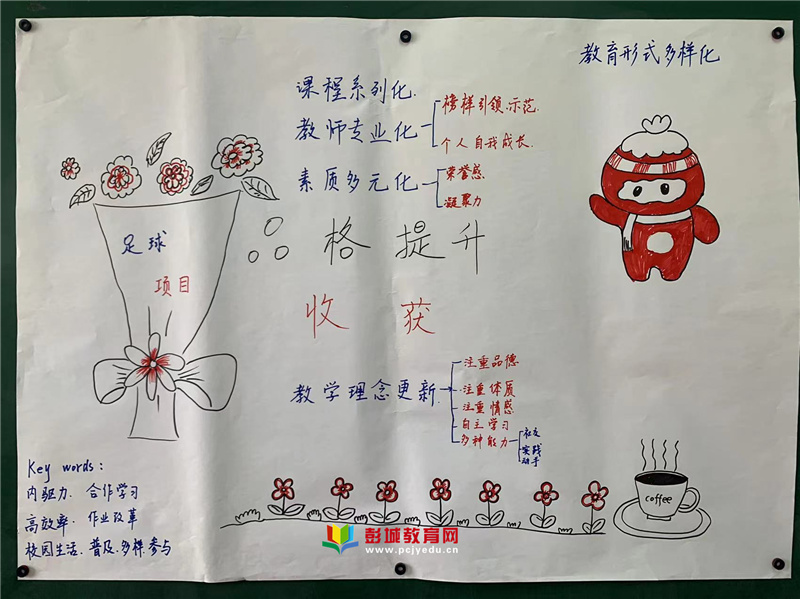 教育形式多样化
课程系列化.
教师专业化
榜样引领.示范.
个人自我成长.
素质多元化
荣誉感
凝聚力
足球
项目
品格提升
收获
教学理念更新.
注重品德
注重体质
注重情感
自主学习
多种能力
社交
实践
动手
Key words:
内驱力. 合作学习
高效率. 作业改革
校园生活.普及.多样参与
coffee
彭城教育网
www.pcjyedu.cn